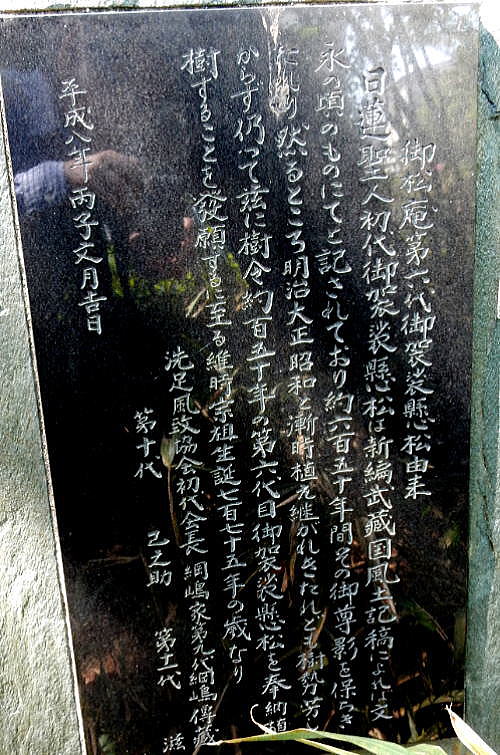 御松庵第六代御袈裟懸松由来
日蓮聖人初代御袈裟懸松は新編武蔵国風土記稿によれば文
永の頃のものにてと記されており約六百五十年間その御尊影を保ちき
たれり然るところ明治大正昭和と漸時植え継がれきたれども樹勢芳し
からず仍って茲に樹令約百五十年の第六代目御袈裟懸松を奉納植
樹することを発願するに至る維時宗祖生誕七百七十五年の歳なり
洗足風致協会初代会長 綱嶋家第九代綱嶋傳蔵
第十代 己之助 第十一代 滋
平成八年丙子文月吉日